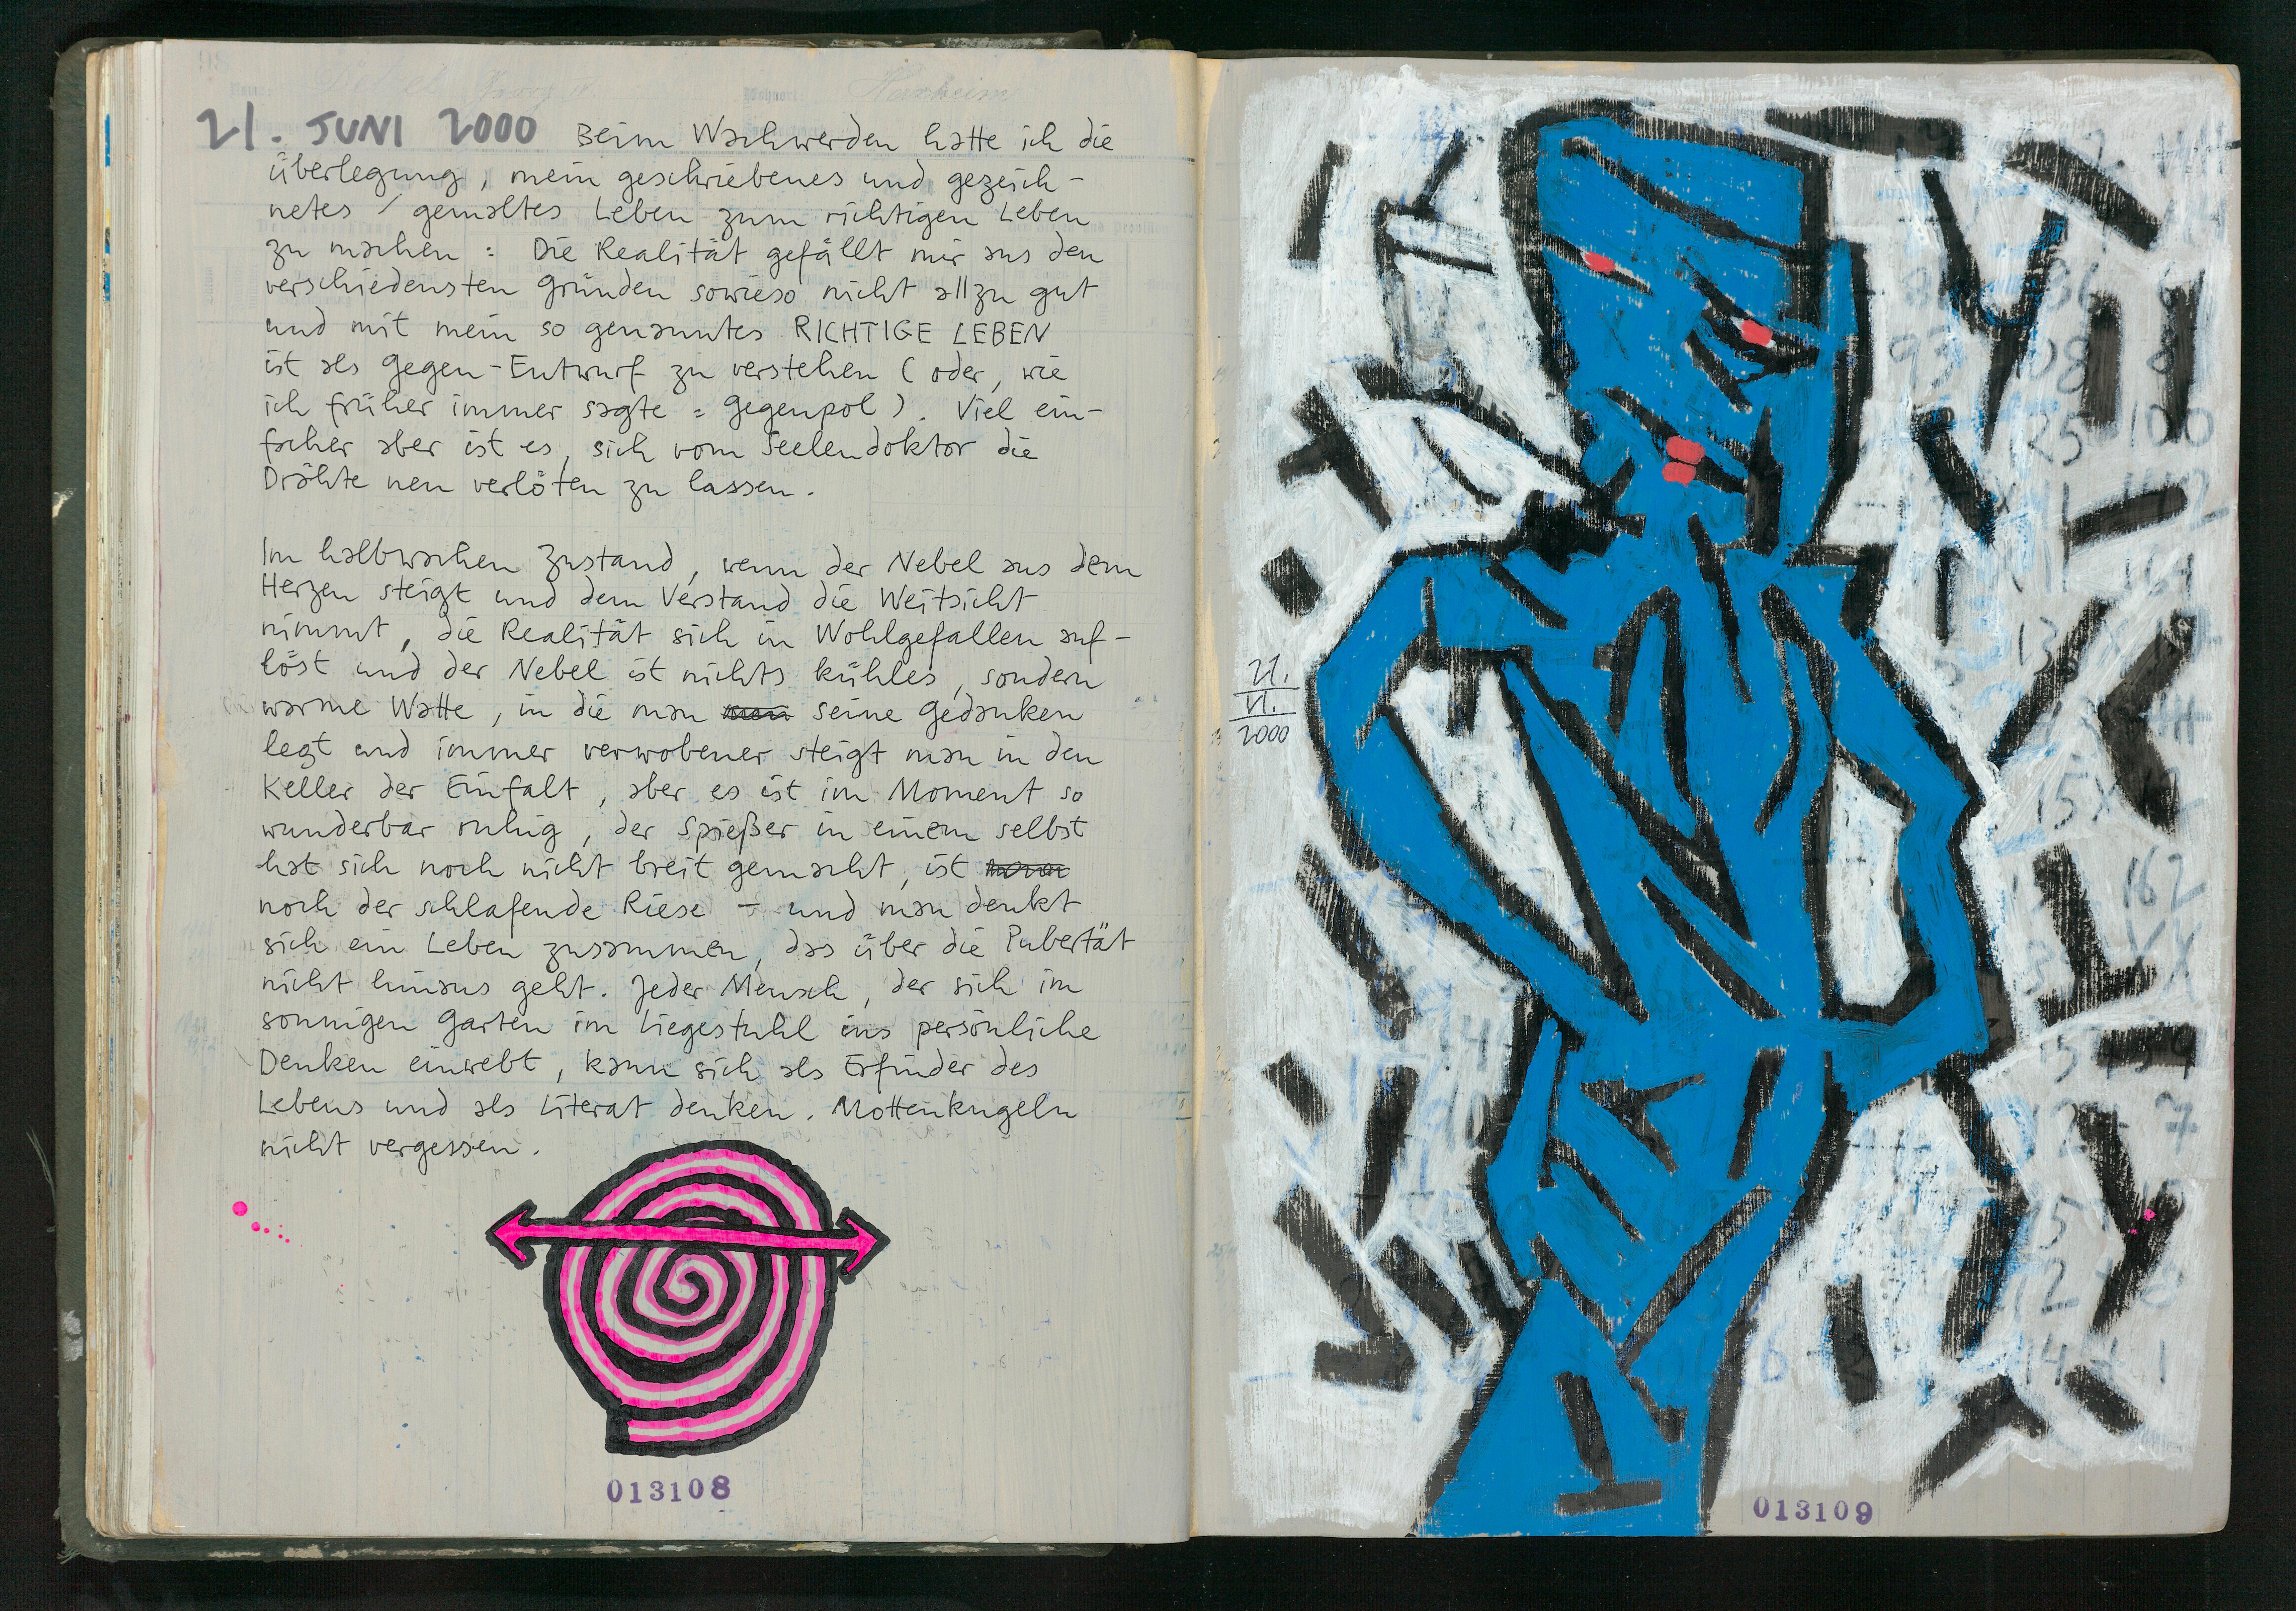 21. JUNI 2000 Beim Wachwerden hatte ich die
Überlegung, mein geschriebenes und gezeich-
netes / gemaltes Leben zum richtigen Leben
zu machen : Die Realität gefällt mir aus den
verschiedensten Gründen sowieso nicht allzu gut
und mit mein so genanntes RICHTIGE LEBEN
ist als Gegen-Entwurf zu verstehen ( oder, wie
ich früher immer sagte : Gegenpol ). Viel ein-
facher aber ist es, sich vom Seelendoktor die
Drähte neu verlöten zu lassen.
Im halbwachen Zustand, wenn der Nebel aus dem
Herzen steigt und dem Verstand die Weitsicht
nimmt, die Realität sich in Wohlgefallen auf-
löst und der Nebel ist nichts kühles, sondern
warme Watte, in die man seine Gedanken
legt und immer verwobener steigt man in den
Keller der Einfalt, aber es ist im Moment so
wunderbar ruhig, der Spießer in einem selbst
hat sich noch nicht breit gemacht, ist
noch der schlafende Riese – und man denkt
sich ein Leben zusammen, das über die Pubertät
nicht hinaus geht. Jeder Mensch, der sich im
sonnigen Garten im Liegestuhl ins persönliche
Denken einwebt, kann sich als Erfinder des
Lebens und als Literat denken. Mottenkugeln
nicht vergessen.
013108
21.
VI.
2000
93 108
25 100
162
013109